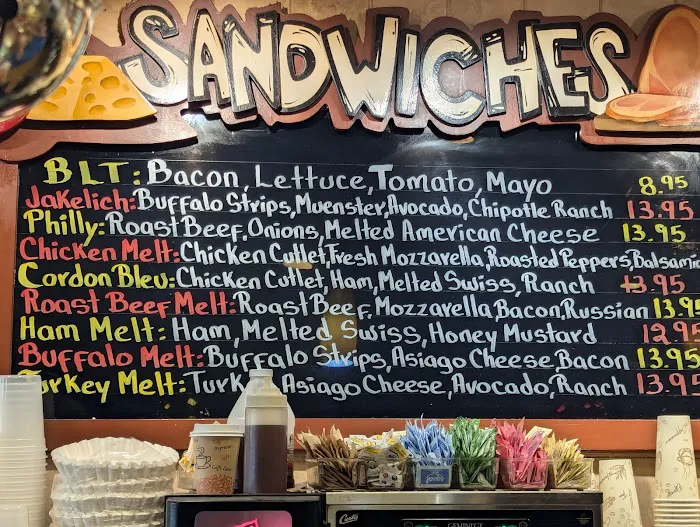 SANDWICHES
BLT: Bacon, Lettuce, Tomato, Mayo 8.95
Jakelich: Buffalo Strips, Muenster, Avocado, Chipotle Ranch 13.95
Philly: Roast Beef, Onions, Melted American Cheese 13.95
Chicken Melt: Chicken Cutlet, Fresh Mozzarella, Roasted Peppers, Balsamic
Cordon Bleu: Chicken Cutlet, Ham, Melted Swiss, Ranch 13.95
Roast Beef Melt: Roast Beef, Mozzarella, Bacon, Russian 13.95
Ham Melt: Ham, Melted Swiss, Honey Mustard 12.95
Buffalo Melt: Buffalo Strips, Asiago Cheese, Bacon 13.95
Turkey Melt: Turk Asiago Cheese, Avocado, Ranch 13.95
Curtis